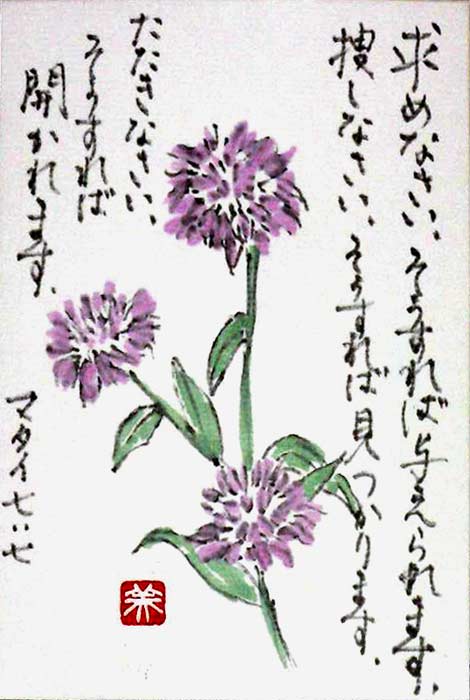 求めなさい、そうすれば与えられます。
捜しなさい、そうすれば見つかります。
たたきなさい、
そうすれば
開かれます。
マタイ七:七